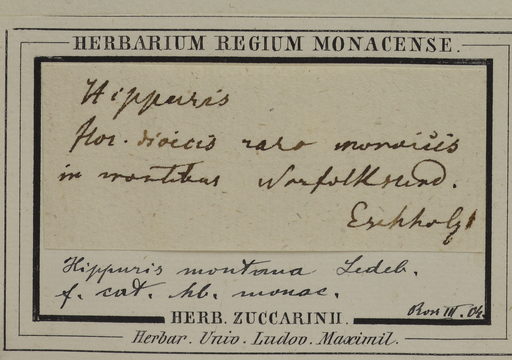 HERBARIUM REGIUM MONACENSE.
Hippuris
flor. dioicis raro monoicis
in montibus Norfolk sund.
Eschholz
Hippuris montana Ledeb.
f. cat. hb. monac.
III. 04.
HERB. ZUCCARINII.
Herbar. Univ. Ludov. Maximil.